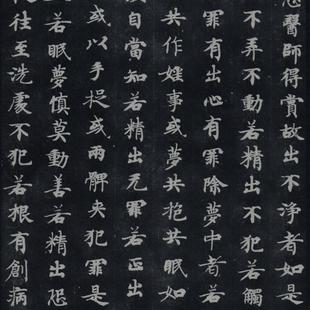 醫師得賞故出不淨者如是
不弄不動若精出不犯若觸
罪有出心有罪除夢中者若
共作婬事或夢共抱共眠如
自當知若精出无罪若正出
或以手捉或兩髀夾犯罪是
若眠夢慎莫動善若精出恐
往至洗處不犯若根有創病